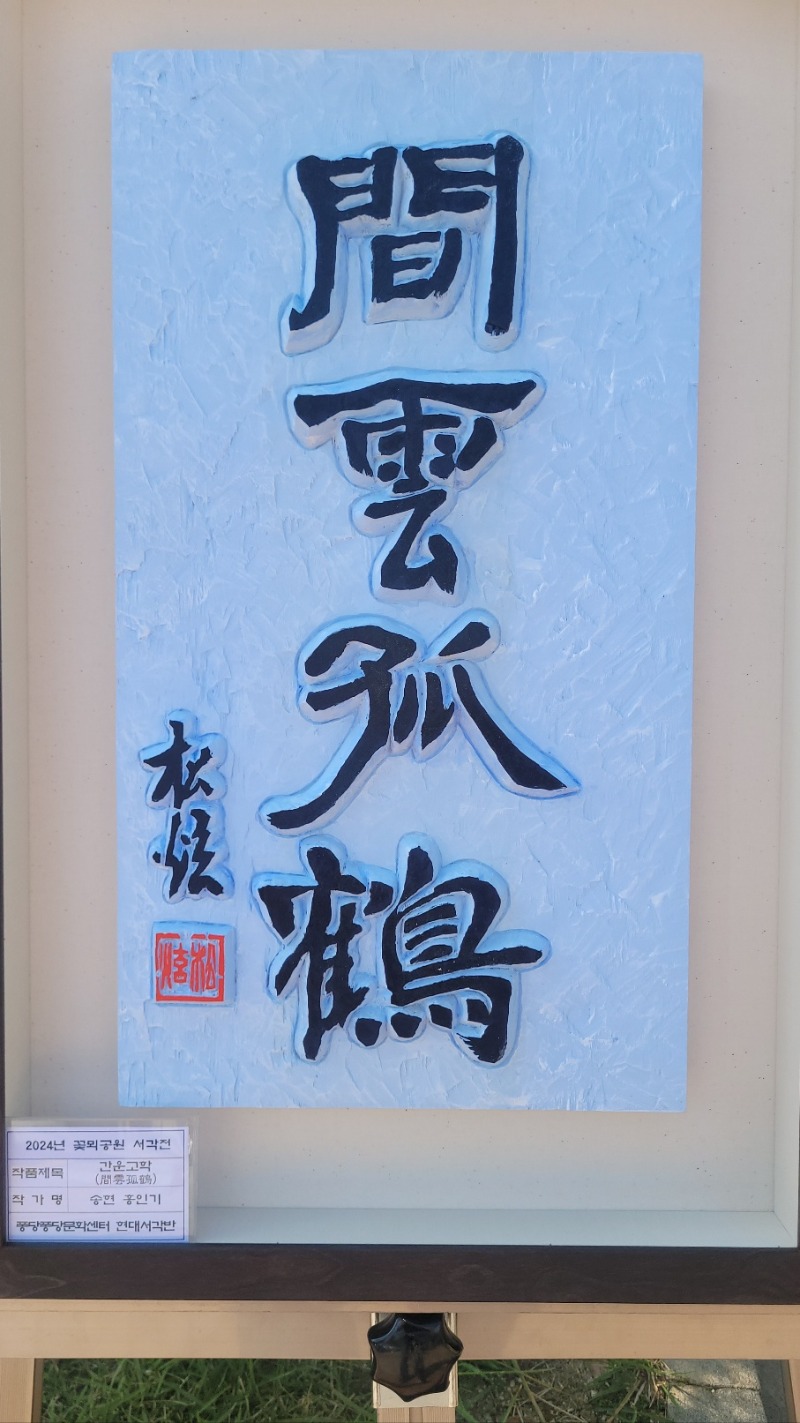 間
雲
孤
鶴
松炫
松炫
2024년 꽃뫼공원 서각전
작품제목 간운고학
(間雲孤鶴)
작 가 명 송현 홍인기
퐁당퐁당문화센터 현대서각반